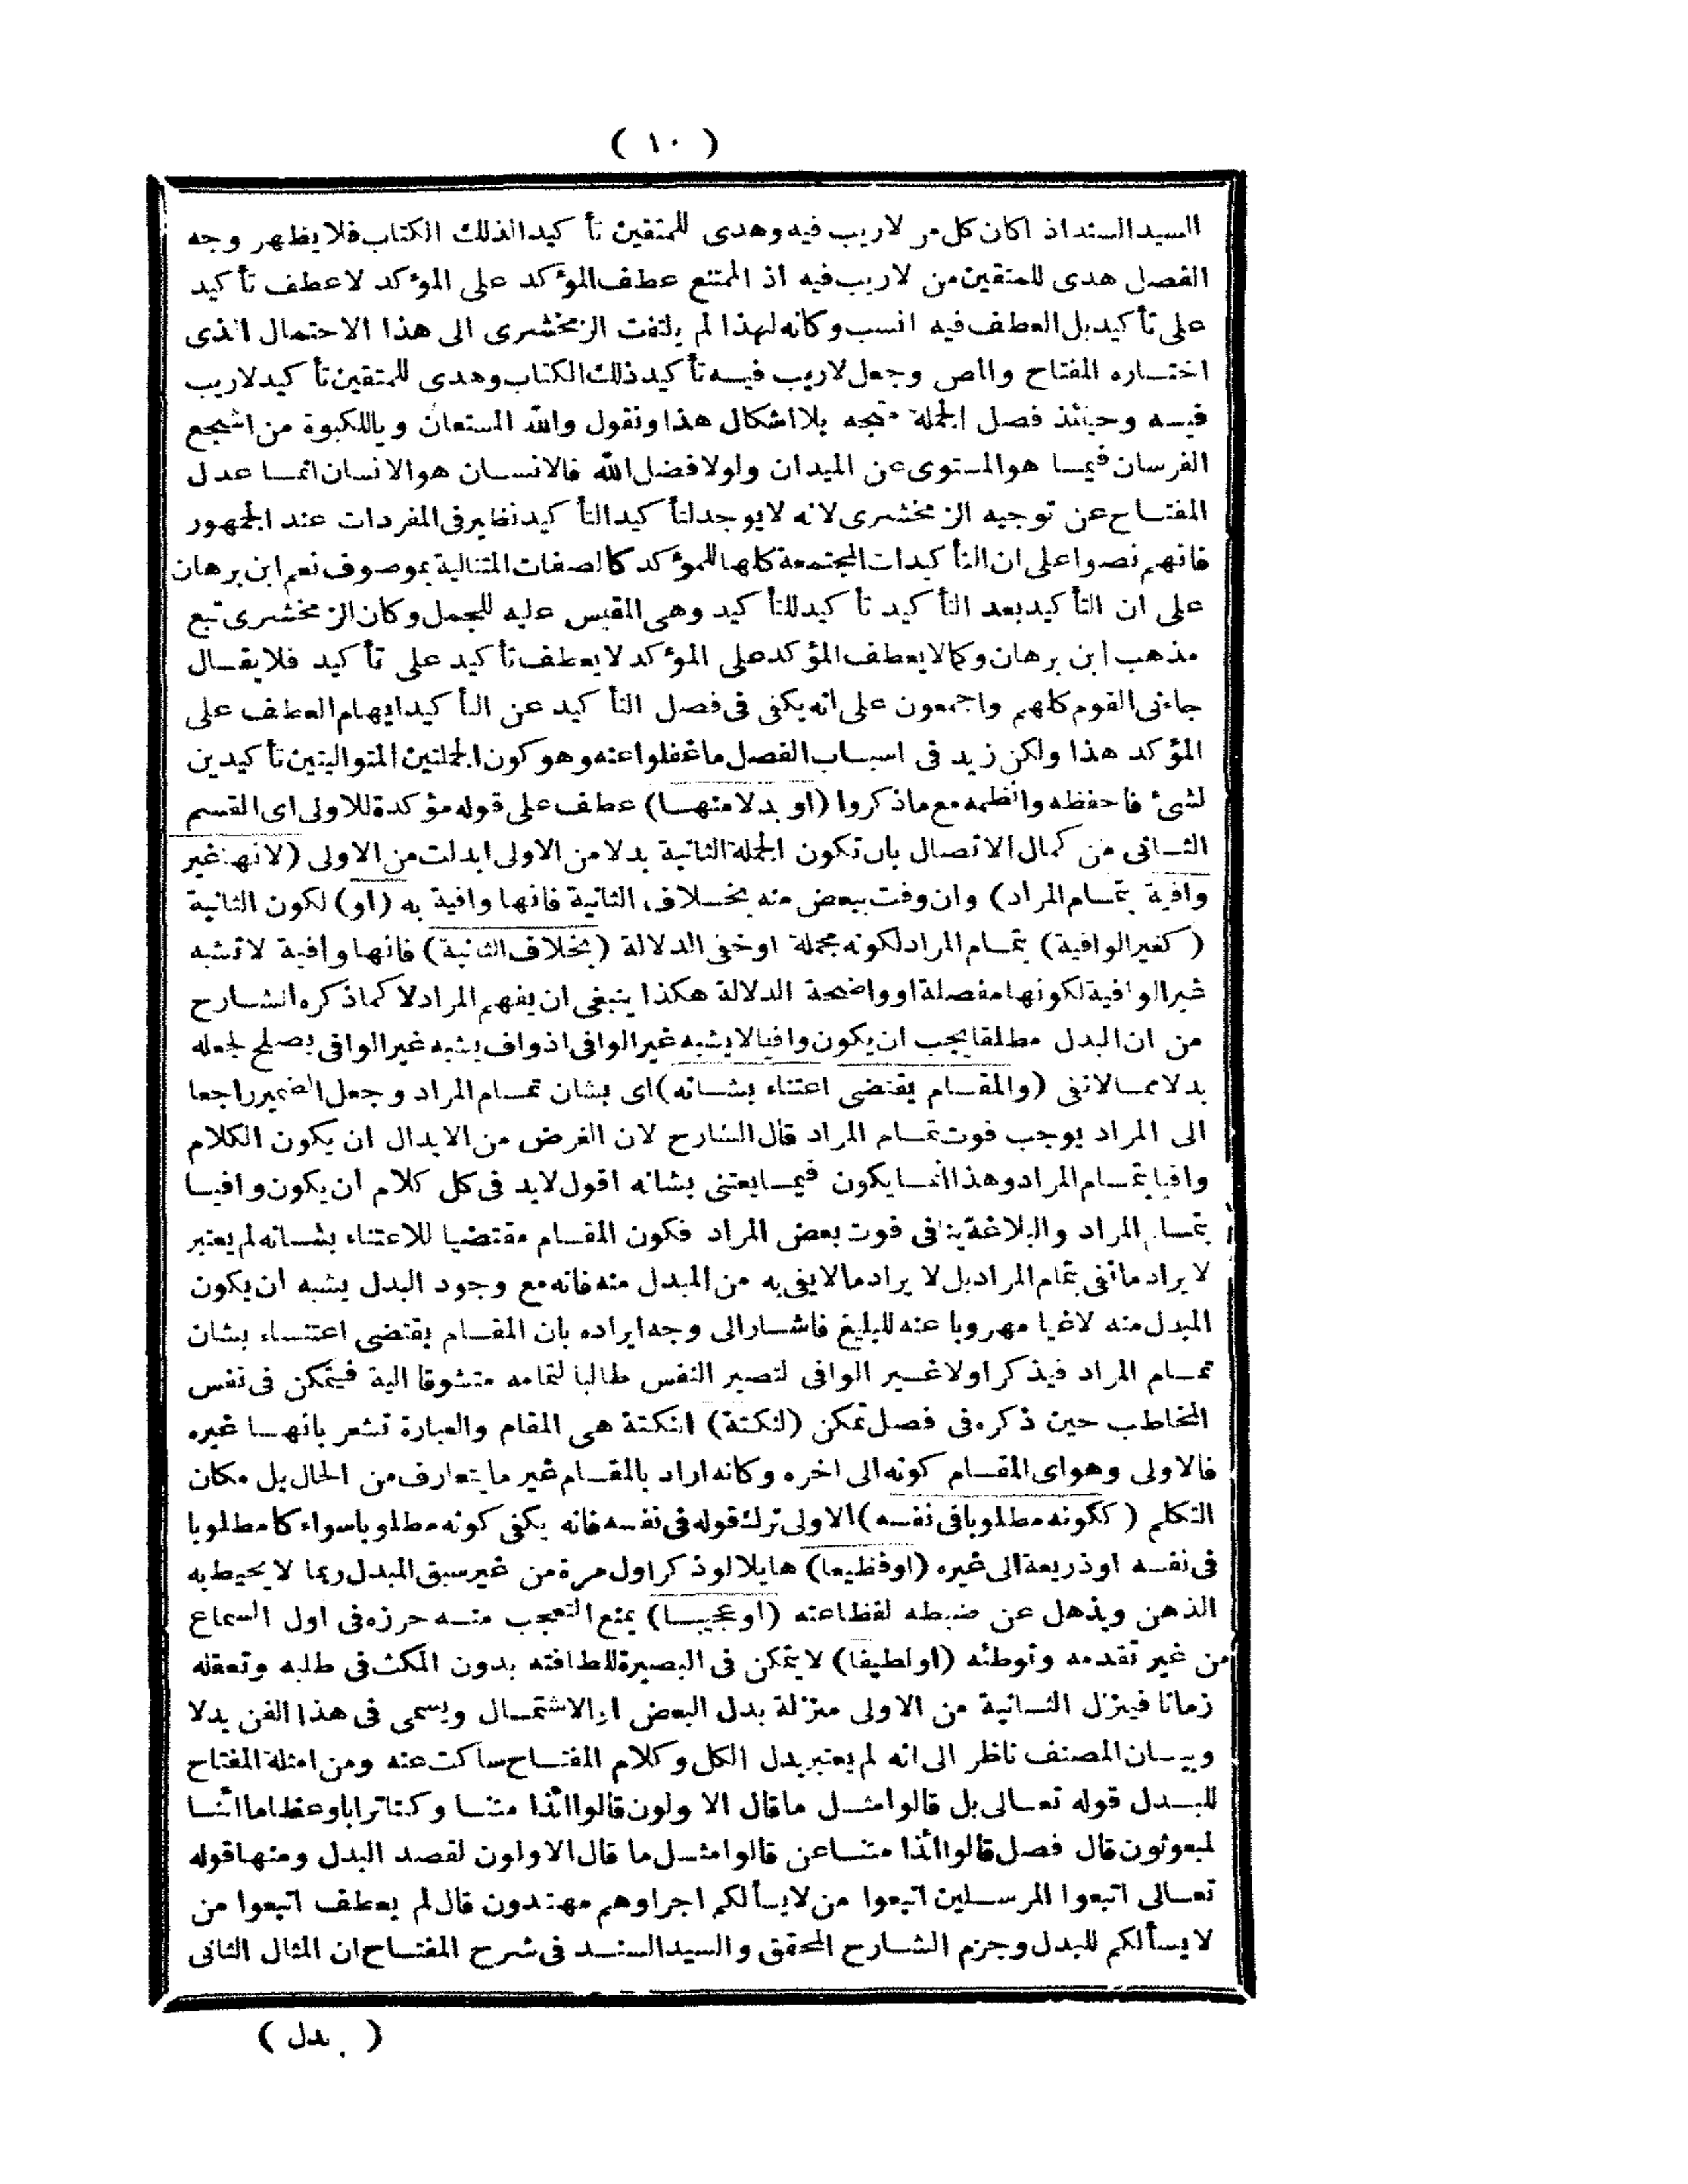 ( ١٠ )
السيد السند اذ اكان كل من لاريب فيه وهدى للمتقين تأ كيدا لذلك الكتاب فلا يظهر وجه
الفصل هدى للمتقين من لاريب فيه اذ الممتنع عطف المؤكد على المؤكد لاعطف تأكيد
على تأكيد بل العطف فيه انسب وكانه لهذا لم يلتفت الزمخشرى الى هذا الاحتمال الذى
اختاره المفتاح والمص وجعل لاريب فيه تأكيد ذلك الكتاب وهدى للمتقين تأكيد لاريب
فيه وحينئذ فصل الجملة متجه بلا اشكال هذا ونقول والله المستعان وياللكبوة من اشجع
الفرسان فيما هو المستوى عن الميدان ولولا فضل الله فالانسان هو الانسان انما عدل
المفتاح عن توجيه الزمخشرى لانه لا يوجد لتأكيد التأكيد نظير فى المفردات عند الجمهور
فانهم نصوا على ان التأكيدات المجتمعة كلها للمؤكد كالصفات المتتالية بموصوف نعم ابن برهان
على ان التأكيد بعد التأكيد تأكيد للتأكيد وهى المقيس عليه للجمل وكان الزمخشرى تبع
مذهب ابن برهان وكما لا يعطف المؤكد على المؤكد لا يعطف تأكيد على تأكيد فلا يقال
جاءنى القوم كلهم واجمعون على انه يكفى فى فصل التأكيد عن التأكيد ايهام العطف على
المؤكد هذا ولكن زيد فى اسباب الفصل ما غفلوا عنه وهو كون الجملتين المتواليتين تأكيدين
لشئ فاحفظه وانظمه مع ماذكروا (او بدلا منها) عطف على قوله مؤكدة للاولى اى القسم
الثانى من كمال الاتصال بان تكون الجملة الثانية بدلا من الاولى ابدلت من الاولى (لانها غير
وافية بتمام المراد) وان وفت ببعض منه بخلاف الثانية فانها وافية به (او) لكون الثانية
(كغير الوافية) بتمام المراد لكونه مجملة اوخفى الدلالة (بخلاف الثنية) فانها وافية لا تشبه
غير الوافية لكونها مفصلة او واضحة الدلالة هكذا ينبغى ان يفهم المراد لا كما ذكره الشارح
من ان البدل مطلقا يجب ان يكون وافيا لا يشبه غير الوافى اذ واف يشبه غير الوافى يصلح لجعله
بدلا مما لا نفى (والمقام يقتضى اعتناء بشانه) اى بشان تمام المراد وجعل الضمير راجعا
الى المراد يوجب فوت تمام المراد قال الشارح لان الغرض من الابدال ان يكون الكلام
وافيا بتمام المراد وهذا انما يكون فيما يعتنى بشانه اقول لابد فى كل كلام ان يكون وافيا
بتمام المراد والبلاغة ينافى فوت بعض المراد فكون المقام مقتضيا للاعتناء بشانه لم يعتبر
لايراد ماتفى بتمام المراد بل لا يراد مالايفى به من المبدل منه فانه مع وجود البدل يشبه ان يكون
المبدل منه لاغيا مهروبا عنه للبليغ فاشار الى وجه ايراده بان المقام يقتضى اعتناء بشان
تمام المراد فيذكر اولا غير الوافى لتصير النفس طالبا لتمامه متشوقا الية فيتمكن فى نفس
المخاطب حين ذكره فى فصل تمكن (لنكتة) النكتة هى المقام والعبارة تشعر بانها غيره
فالاولى وهو اى المقام كونه الى اخره وكانه اراد بالمقام غير ما يتعارف من الحال بل مكان
التكلم (ككونه مطلوبا فى نفسه) الاولى ترك قوله فى نفسه فانه يكفى كونه مطلوبا سواء كا مطلوبا
فى نفسه اوذريعة الى غيره (اوفظيعا) هايلا لوذكر اول مرة من غير سبق المبدل ربما لا يحيط به
الذهن ويذهل عن ضبطه لفظاعته (اوعجيبا) يمنع التعجب منه حرزه فى اول السماع
من غير تقدمه وتوطئه (اولطيفا) لا يتمكن فى البصيرة للطافته بدون المكث فى طلبه وتعقله
زمانا فينزل الثانية من الاولى منزلة بدل البعض او الاشتمال ويسمى فى هذا الفن بدلا
وبيان المصنف ناظر الى انه لم يعتبر بدل الكل وكلام المفتاح ساكت عنه ومن امثلة المفتاح
للبدل قوله تعالى بل قالوا مثل ماقال الا ولون قالوا ائذا متنا وكنا ترابا وعظاما ائنا
لمبعوثون قال فصل قالوا ائذا متنا عن قالوا مثل ما قال الاولون لقصد البدل ومنها قوله
تعالى اتبعوا المرسلين اتبعوا من لا يسألكم اجرا وهم مهتدون قال لم يعطف اتبعوا من
لا يسألكم للبدل وجزم الشارح المحقق والسيد السند فى شرح المفتاح ان المثال الثانى
( بدل )